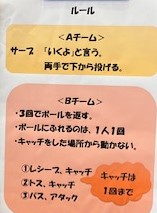 ルール
<Aチーム>
サーブ 「いくよ」と言う。
両手で下から投げる。
<Bチーム>
・3回でボールを返す。
・ボールにふれるのは、1人1回
・キャッチをした場所から動かない。
①レシーブ、キャッチ
②トス、キャッチ
③パス、アタック
キャッチは
1回まで